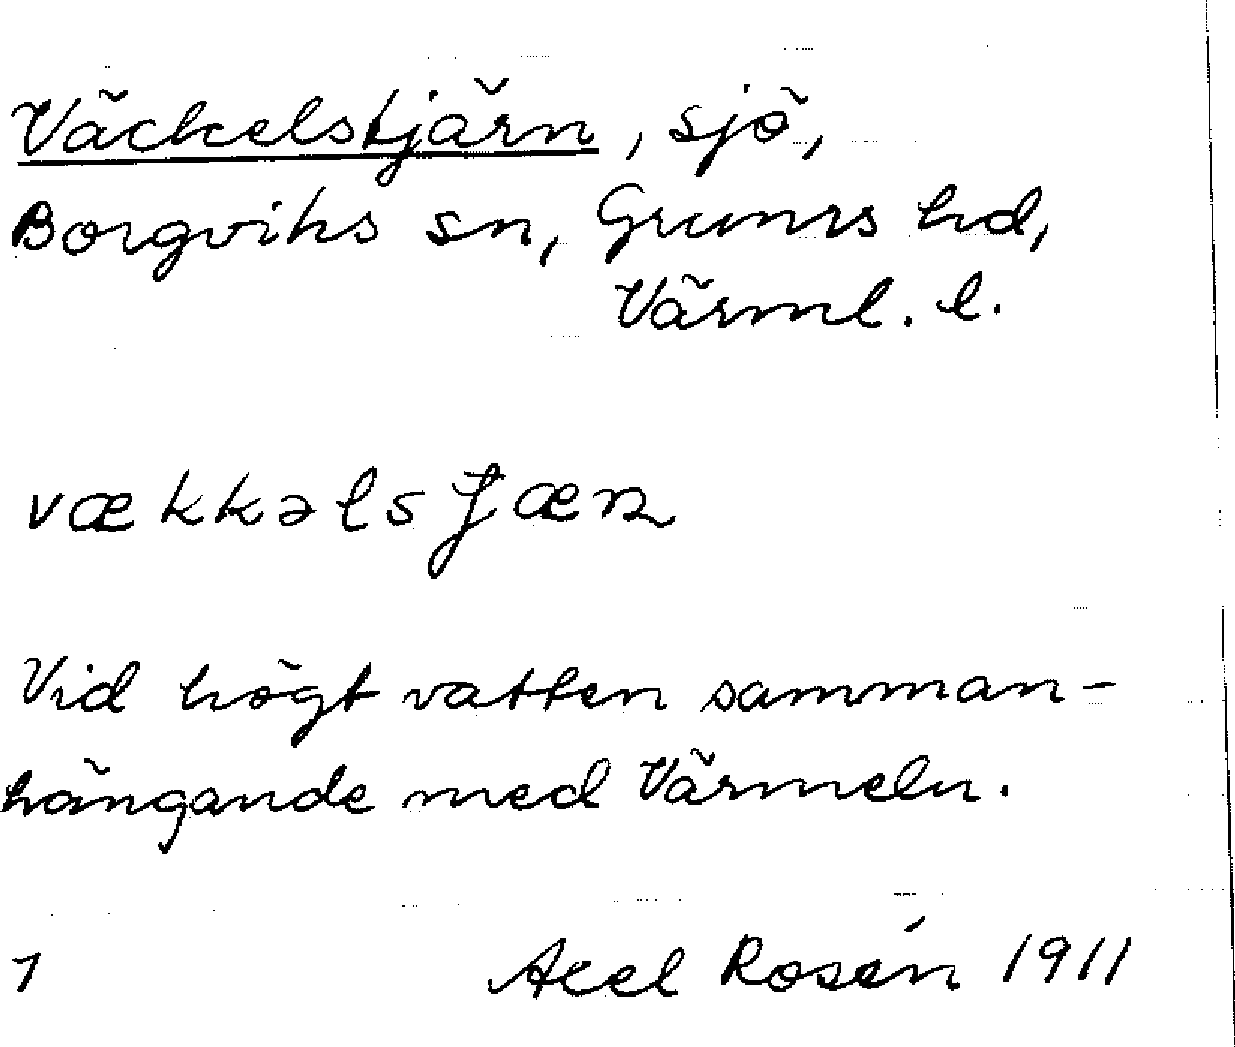 Väckelstjärn, sjö,
Borgviks sn, Grums hd,
Värml. l.
vækkəlsʄæɳ
Vid högt vatten samman-
hängande med Värmeln.
1 Axel Rosén 1911